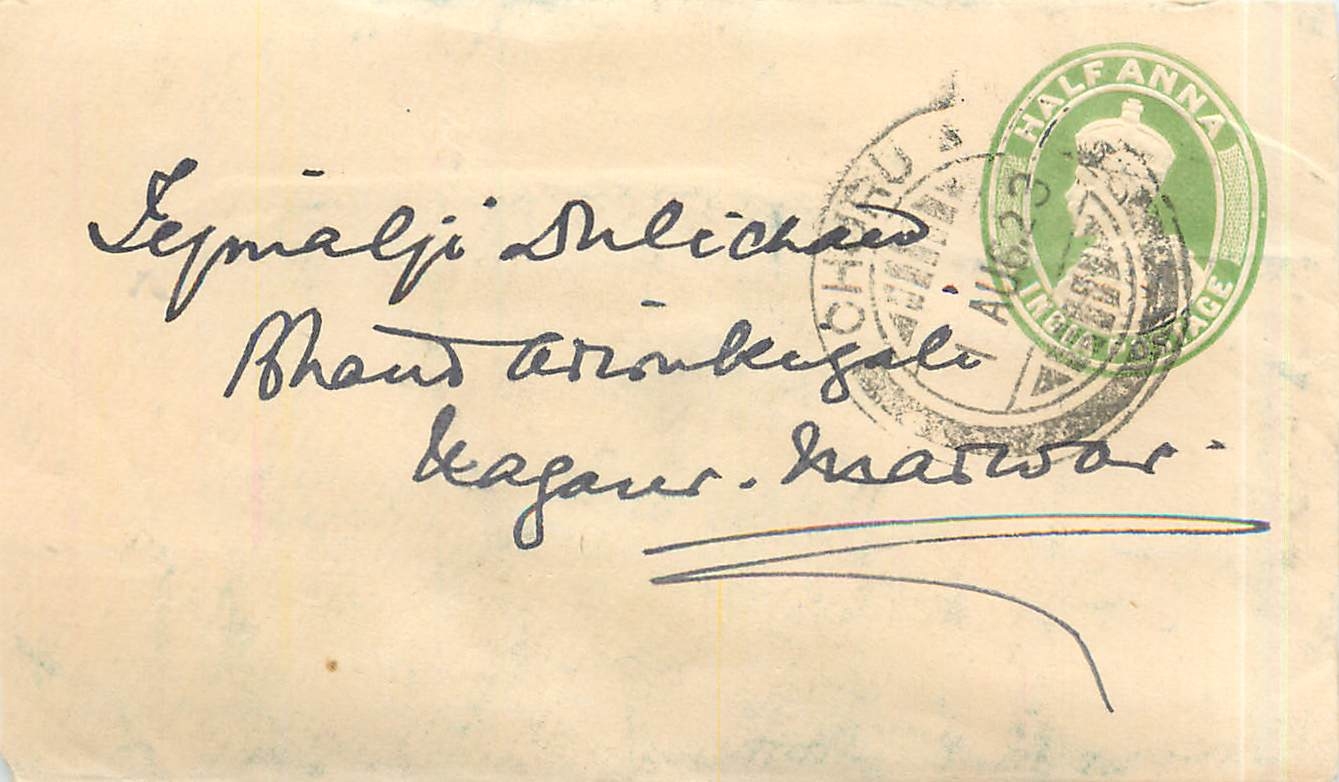 HALF ANNA
INDIA POSTAGE
CHURU
1 AUG.23
Tejmalji Dulichand
Bhand
Nagaur. Marwar.